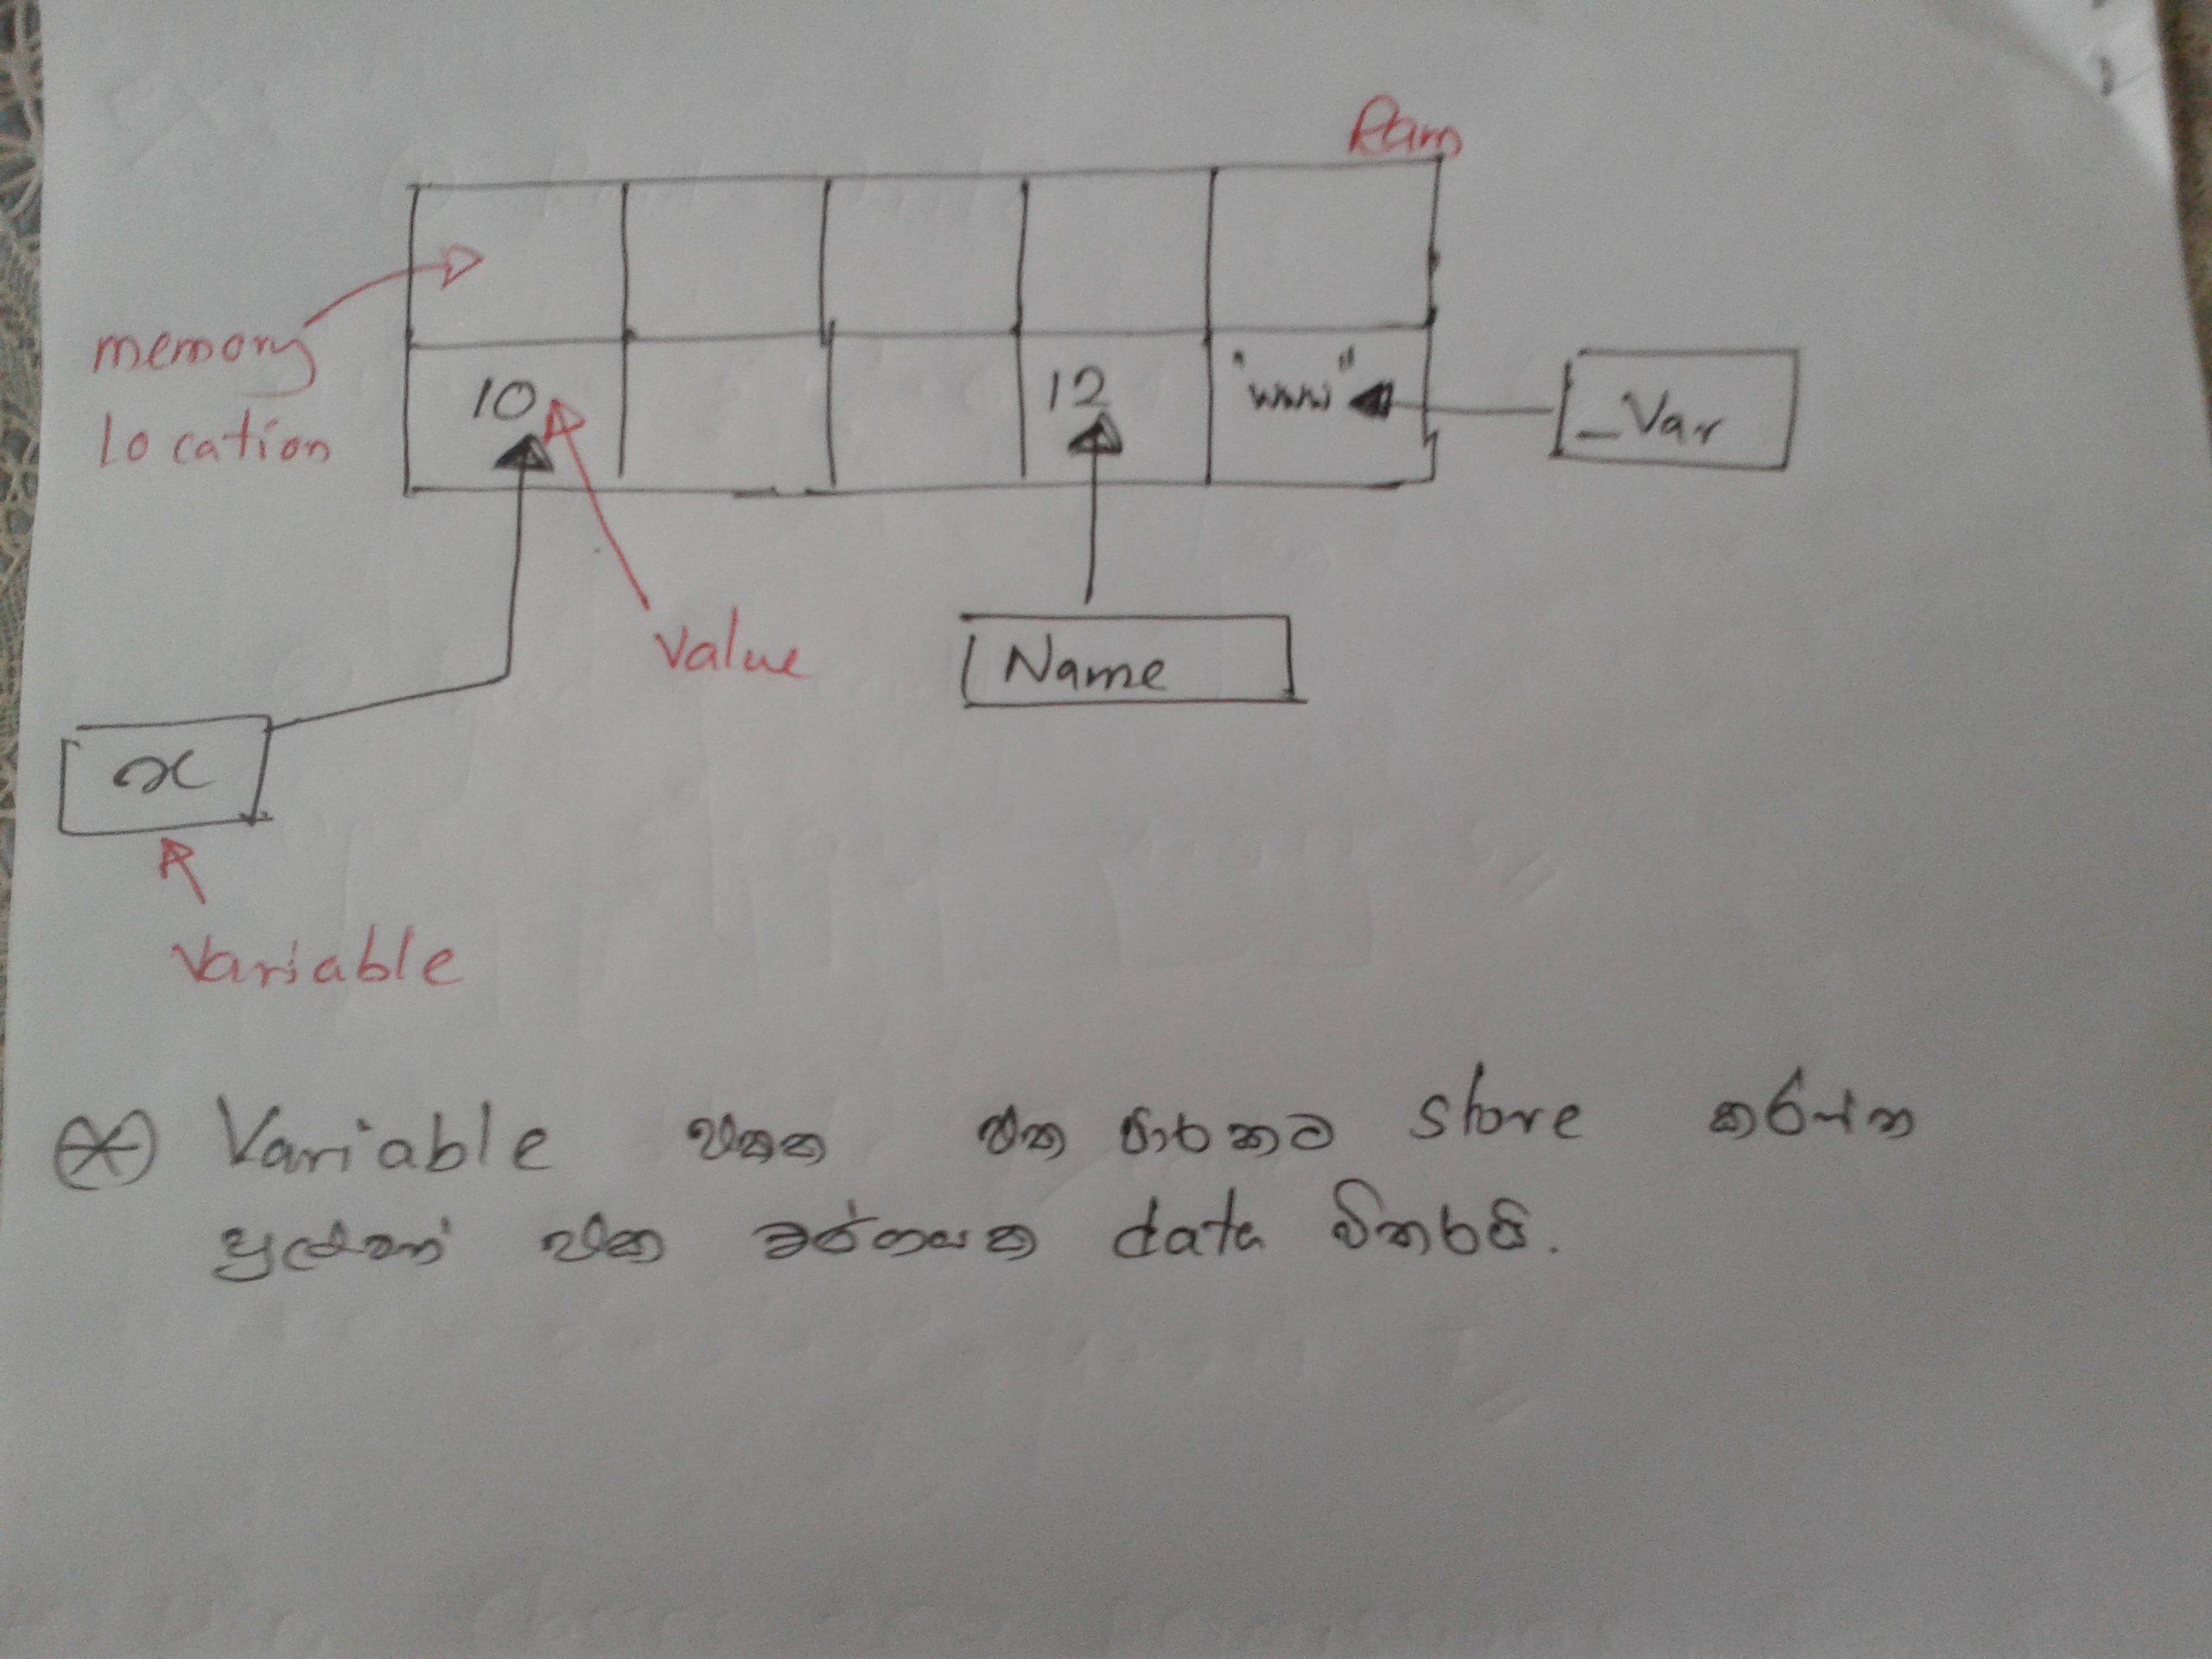 Ram
memory
location
10
12
"www"
_Var
value
Name
x
Variable
Variable එකක එක පාරකට store කරන්න
පුලුවන් එක වර්ගයක data විතරයි.